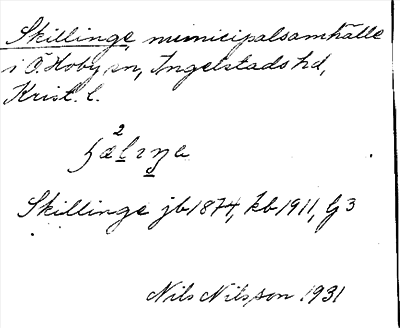 Skillinge, municipalsamhälle
i Ö. Hoby sn, Ingelstads hd,
Krist. l.
2
Skillinge jb 1874, kb 1911, G 3
Nils Nilsson 1931